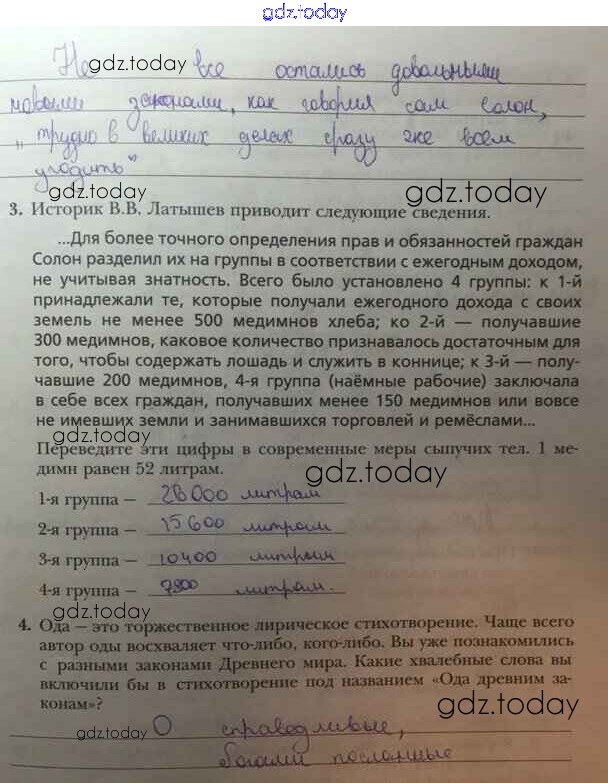 gdz.today
Не все остались довольными
gdz.today
новыми законами, как говорил сам солон,
„трудно в великих делах сразу же всем
угодить"
gdz.today
gdz.today
3. Историк В.В. Латышев приводит следующие сведения.
...Для более точного определения прав и обязанностей граждан
Солон разделил их на группы в соответствии с ежегодным доходом,
не учитывая знатность. Всего было установлено 4 группы: к 1-й
принадлежали те, которые получали ежегодного дохода с своих
земель не менее 500 медимнов хлеба; ко 2-й — получавшие
300 медимнов, каковое количество признавалось достаточным для
того, чтобы содержать лошадь и служить в коннице; к 3-й — полу-
чавшие 200 медимнов, 4-я группа (наёмные рабочие) заключала
в себе всех граждан, получавших менее 150 медимнов или вовсе
не имевших земли и занимавшихся торговлей и ремёслами...
gdz.today
Переведите эти цифры в современные меры сыпучих тел. 1 ме-
димн равен 52 литрам.
gdz.today
1-я группа — 26000 литрам
2-я группа — 15600 литрам
3-я группа — 10400 литрам
4-я группа — 7800 литрам.
gdz.today
4. Ода — это торжественное лирическое стихотворение. Чаще всего
автор оды восхваляет что-либо, кого-либо. Вы уже познакомились
с разными законами Древнего мира. Какие хвалебные слова вы
включили бы в стихотворение под названием «Ода древним за-
конам»?
gdz.today
gdz.today
О справедливые,
богами посланные